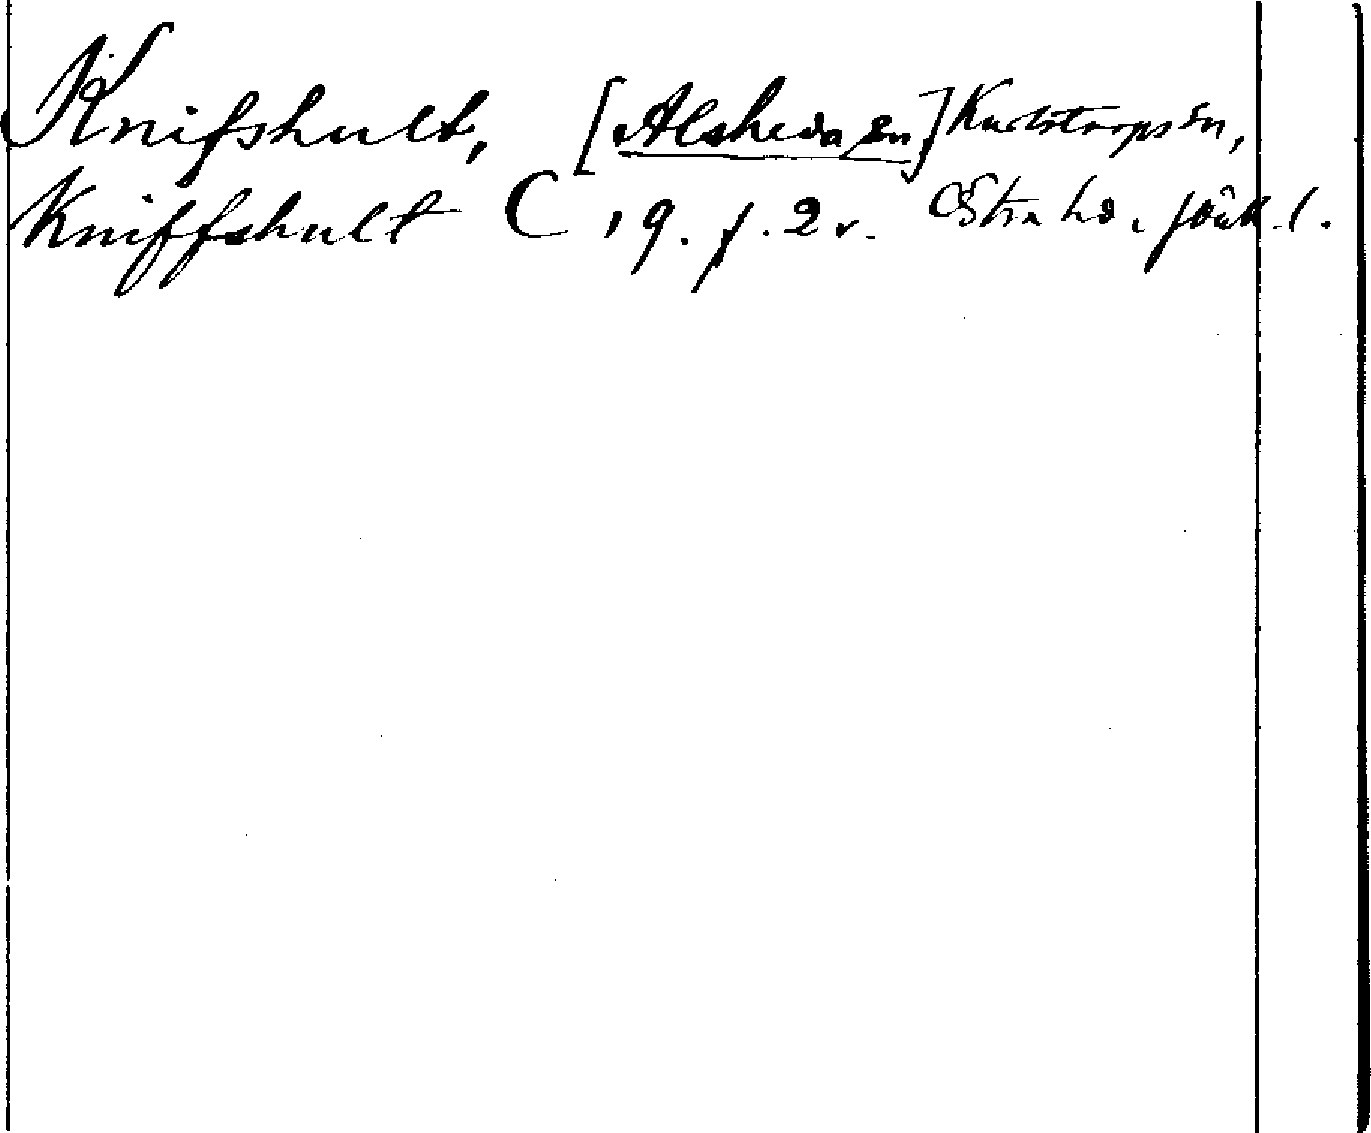 Knifshult, [Alsheda sn] Karlstorps sn,
Kniffshult C 19. f. 2 v. Östra hd, Jönk. l.